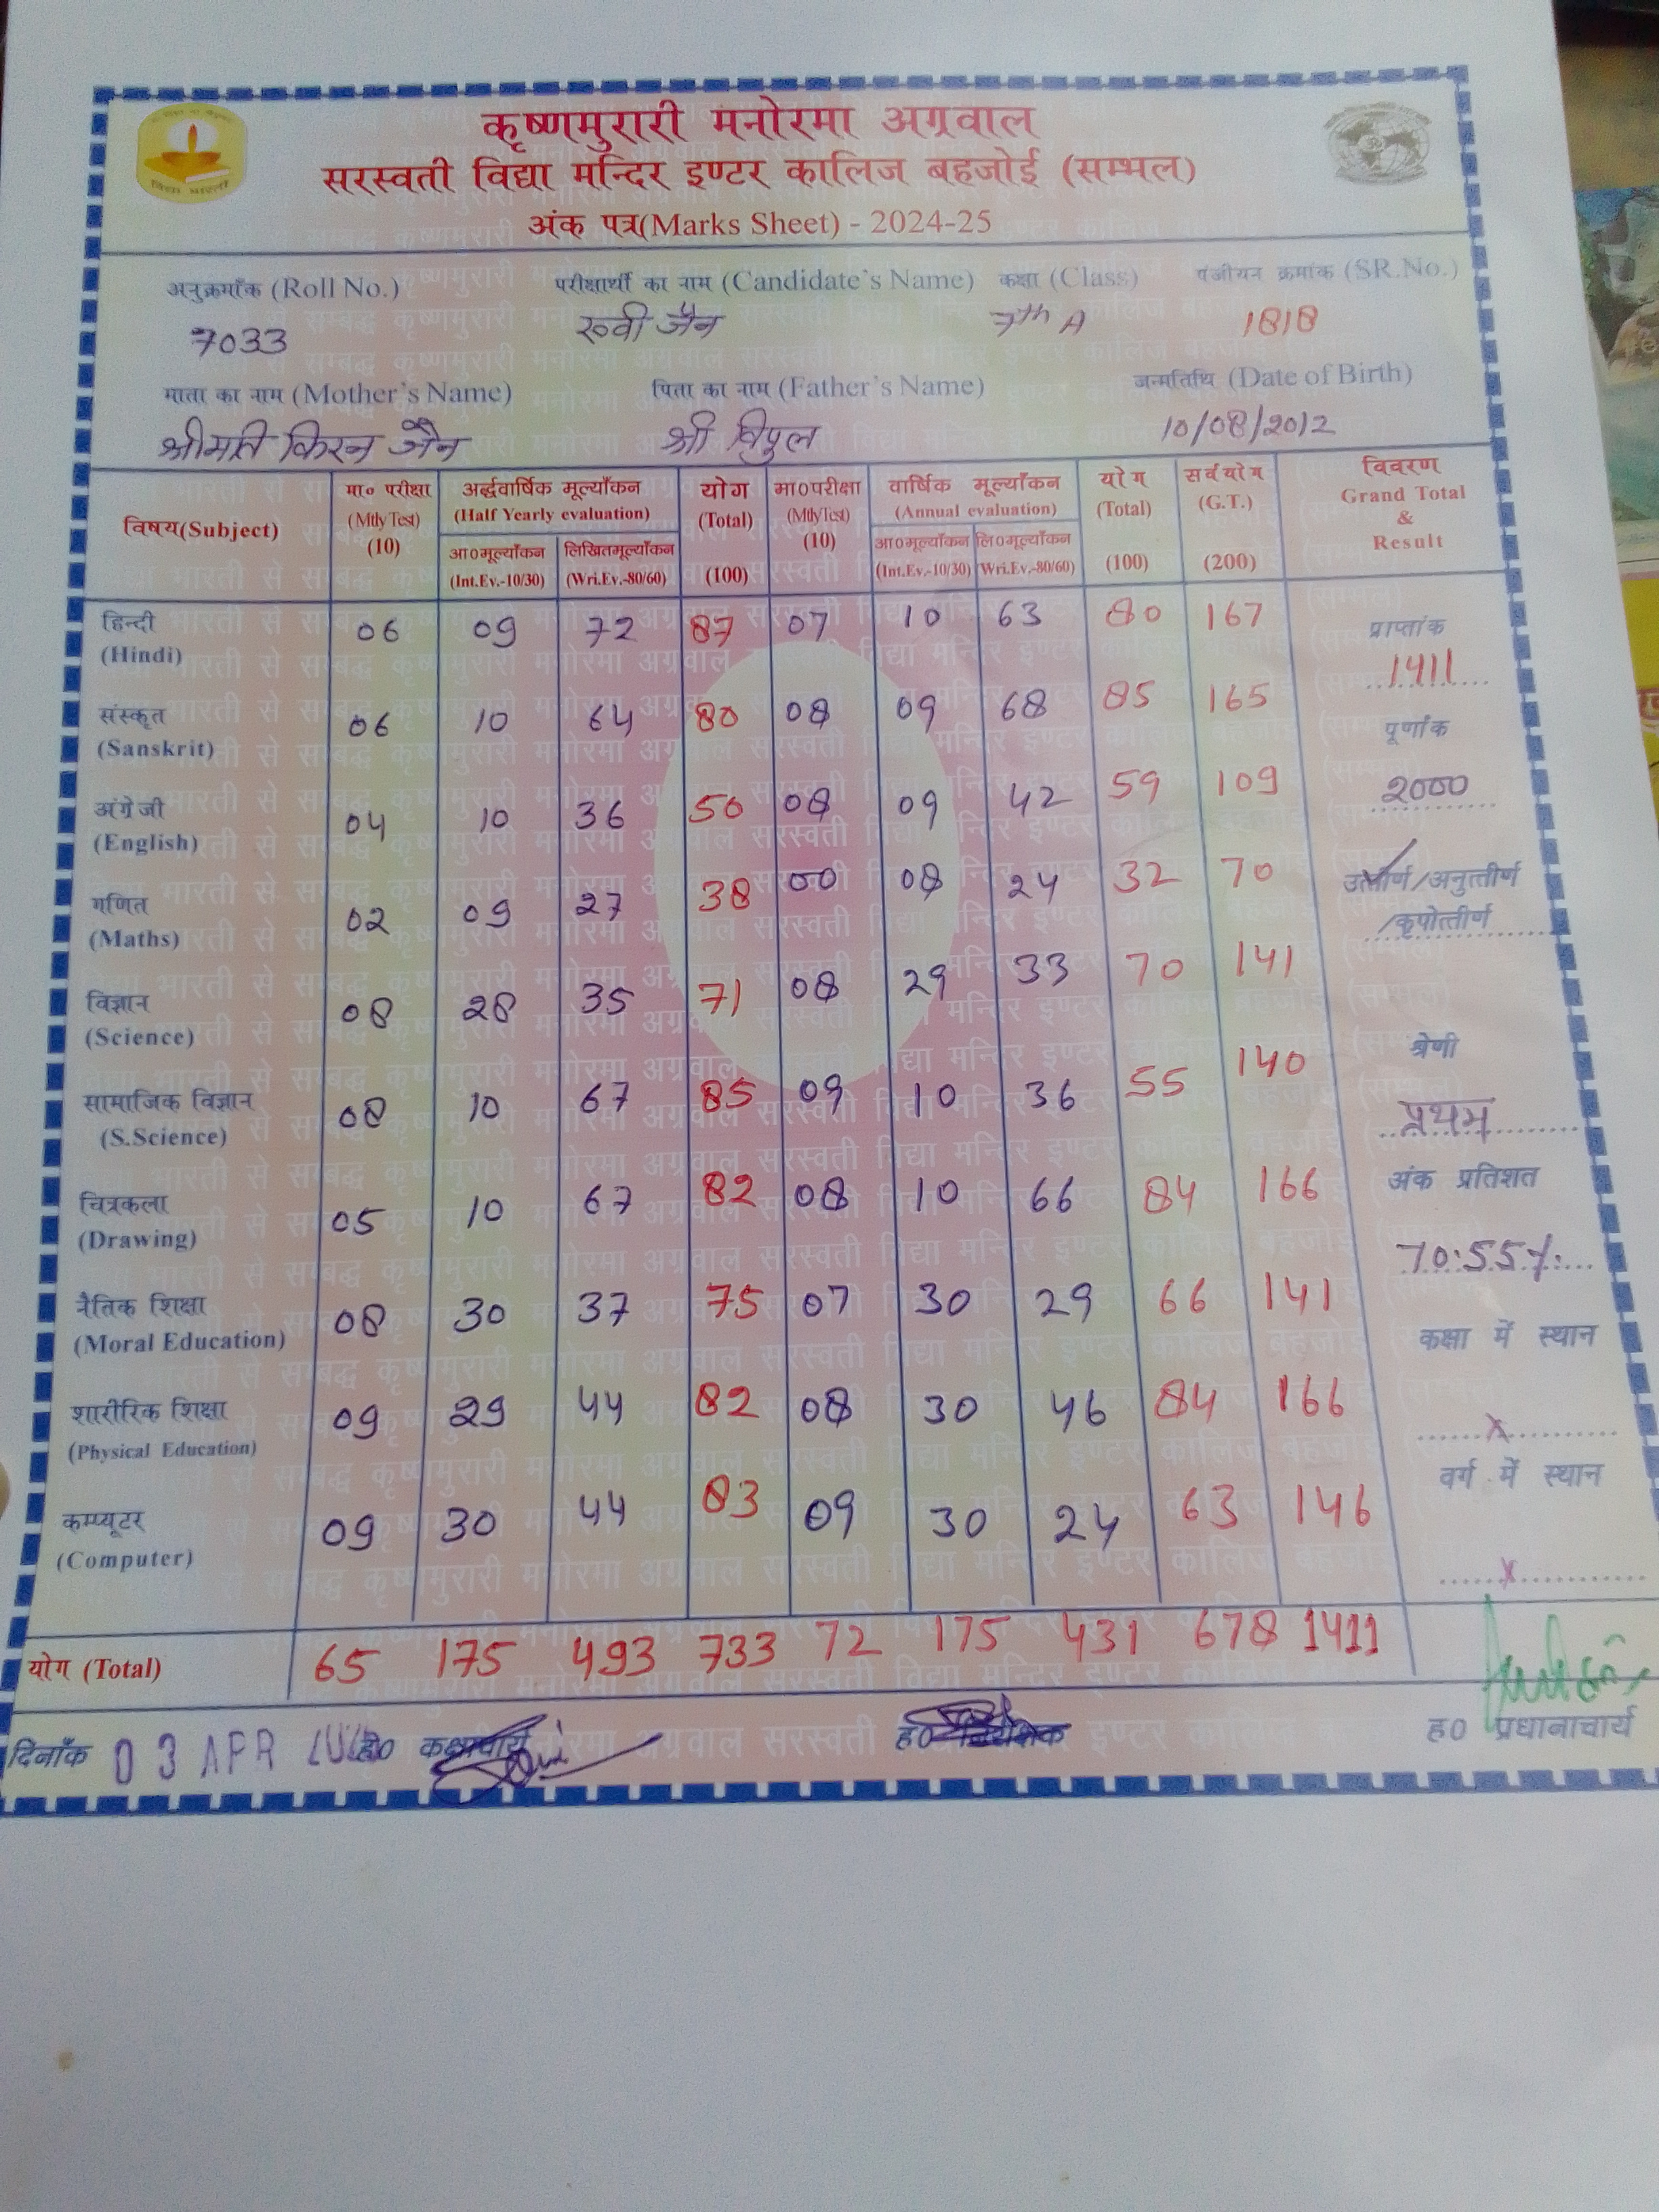 कृष्णमुरारी मनोरमा अग्रवाल
सरस्वती विद्या मन्दिर इण्टर कालिज बहजोई (सम्भल)
अंक पत्र(Marks Sheet) - 2024-25
विद्या भारती
अनुक्रमाँक (Roll No.) परीक्षार्थी का नाम (Candidate's Name) कक्षा (Class) पंजीयन क्रमांक (SR.No.)
7033 रूवी जैन 7th A 1818
माता का नाम (Mother's Name) पिता का नाम (Father's Name) जन्मतिथि (Date of Birth)
श्रीमति किरन जैन श्री विपुल 10/08/2012
विषय(Subject) मा० परीक्षा (Mtly Test) (10) अर्द्धवार्षिक मूल्याँकन (Half Yearly evaluation) योग (Total) (100) मा०परीक्षा (Mtly Test) (10) वार्षिक मूल्याँकन (Annual evaluation) योग (Total) (100) सर्वयोग (G.T.) (200) विवरण Grand Total & Result
आ०मूल्याँकन (Int.Ev.-10/30) लिखितमूल्याँकन (Wri.Ev.-80/60) आ०मूल्याँकन (Int.Ev.-10/30) लि०मूल्याँकन (Wri.Ev.-80/60)
हिन्दी (Hindi) 06 09 72 87 07 10 63 80 167
प्राप्तांक
1411
संस्कृत (Sanskrit) 06 10 64 80 08 09 68 85 165
पूर्णांक
2000
अंग्रेजी (English) 04 10 36 50 08 09 42 59 109
गणित (Maths) 02 09 27 38 00 08 24 32 70
उत्तीर्ण/अनुत्तीर्ण
/कृपोत्तीर्ण
विज्ञान (Science) 08 28 35 71 08 29 33 70 141
सामाजिक विज्ञान (S.Science) 08 10 67 85 09 10 36 55 140
श्रेणी
प्रथम
चित्रकला (Drawing) 05 10 67 82 08 10 66 84 166
अंक प्रतिशत
70.55%
नैतिक शिक्षा (Moral Education) 08 30 37 75 07 30 29 66 141
कक्षा में स्थान
x
शारीरिक शिक्षा (Physical Education) 09 29 44 82 08 30 46 84 166
वर्ग में स्थान
x
कम्प्यूटर (Computer) 09 30 44 83 09 30 24 63 146
योग (Total) 65 175 493 733 72 175 431 678 1411
दिनाँक 03 APR ह० कक्षाचार्य ह० ह० प्रधानाचार्य